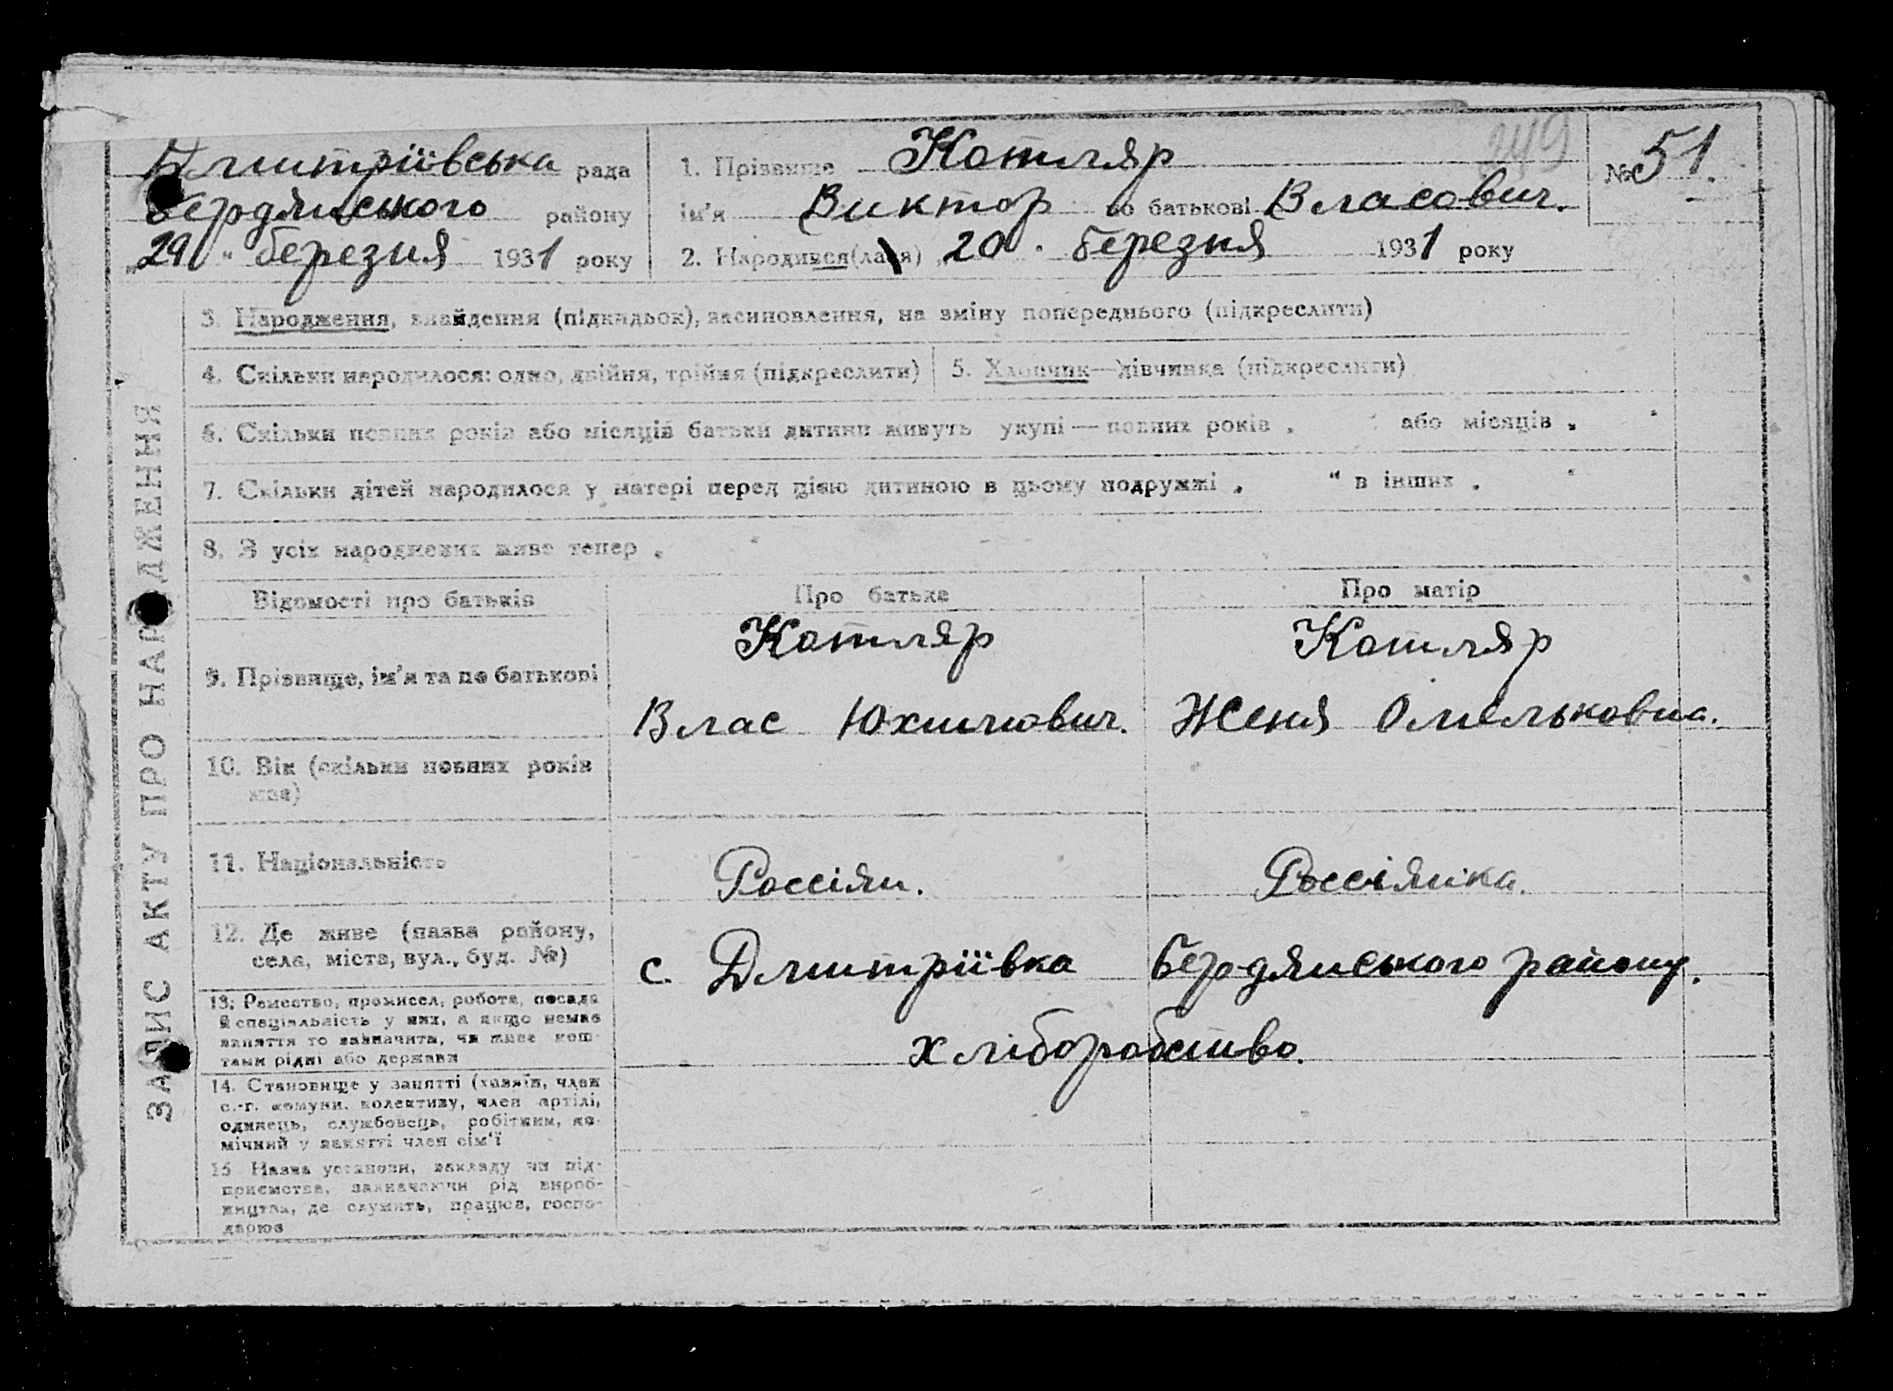 Дмитріївська рада
Бердянського району
„29" березня 1931 року
1. Прізвище Котляр
249
№ 51.
ім'я Виктор по батькові Власович.
2. Народився(лася) 20 березня 1931 року
ЗАПИС АКТУ ПРО НАРОДЖЕННЯ
3. Народження, знайдення (підкидьок), засиновлення, на зміну попереднього (підкреслити)
4. Скільки народилося: одно, двійня, трійня (підкреслити)
5. Хлопчик—дівчинка (підкреслити)
6. Скільки повних років або місяців батьки дитини живуть укупі — повних років . або місяців .
7. Скільки дітей народилося у матері перед цією дитиною в цьому подружжі . " в інших .
8. З усіх народжених живе тепер .
Відомості про батьків
Про батька
Про матір
9. Прізвище, ім'я та по батькові
Котляр
Влас Юхимович.
Котляр
Женя Омельковна.
10. Вік (скільки повних років має)
11. Національність
Россіян.
Россіянка.
12. Де живе (назва району,
села, міста, вул., буд. №)
с. Дмитріївка Бердянського району.
13. Ремество, промисел, робота, посада
й спеціяльність у них, а якщо немає
заняття то зазначити, чи живе кош-
тами рідні або держави
хліборобство.
14. Становище у занятті (хазяїн, член
с.-г. комуни, колективу, член артілі,
одинець, службовець, робітник, по-
мічний у занятті член сім'ї
15. Назва установи, закладу чи під-
приємства, зазначаючи рід вироб-
ництва, де служить, працює, госпо-
дарює